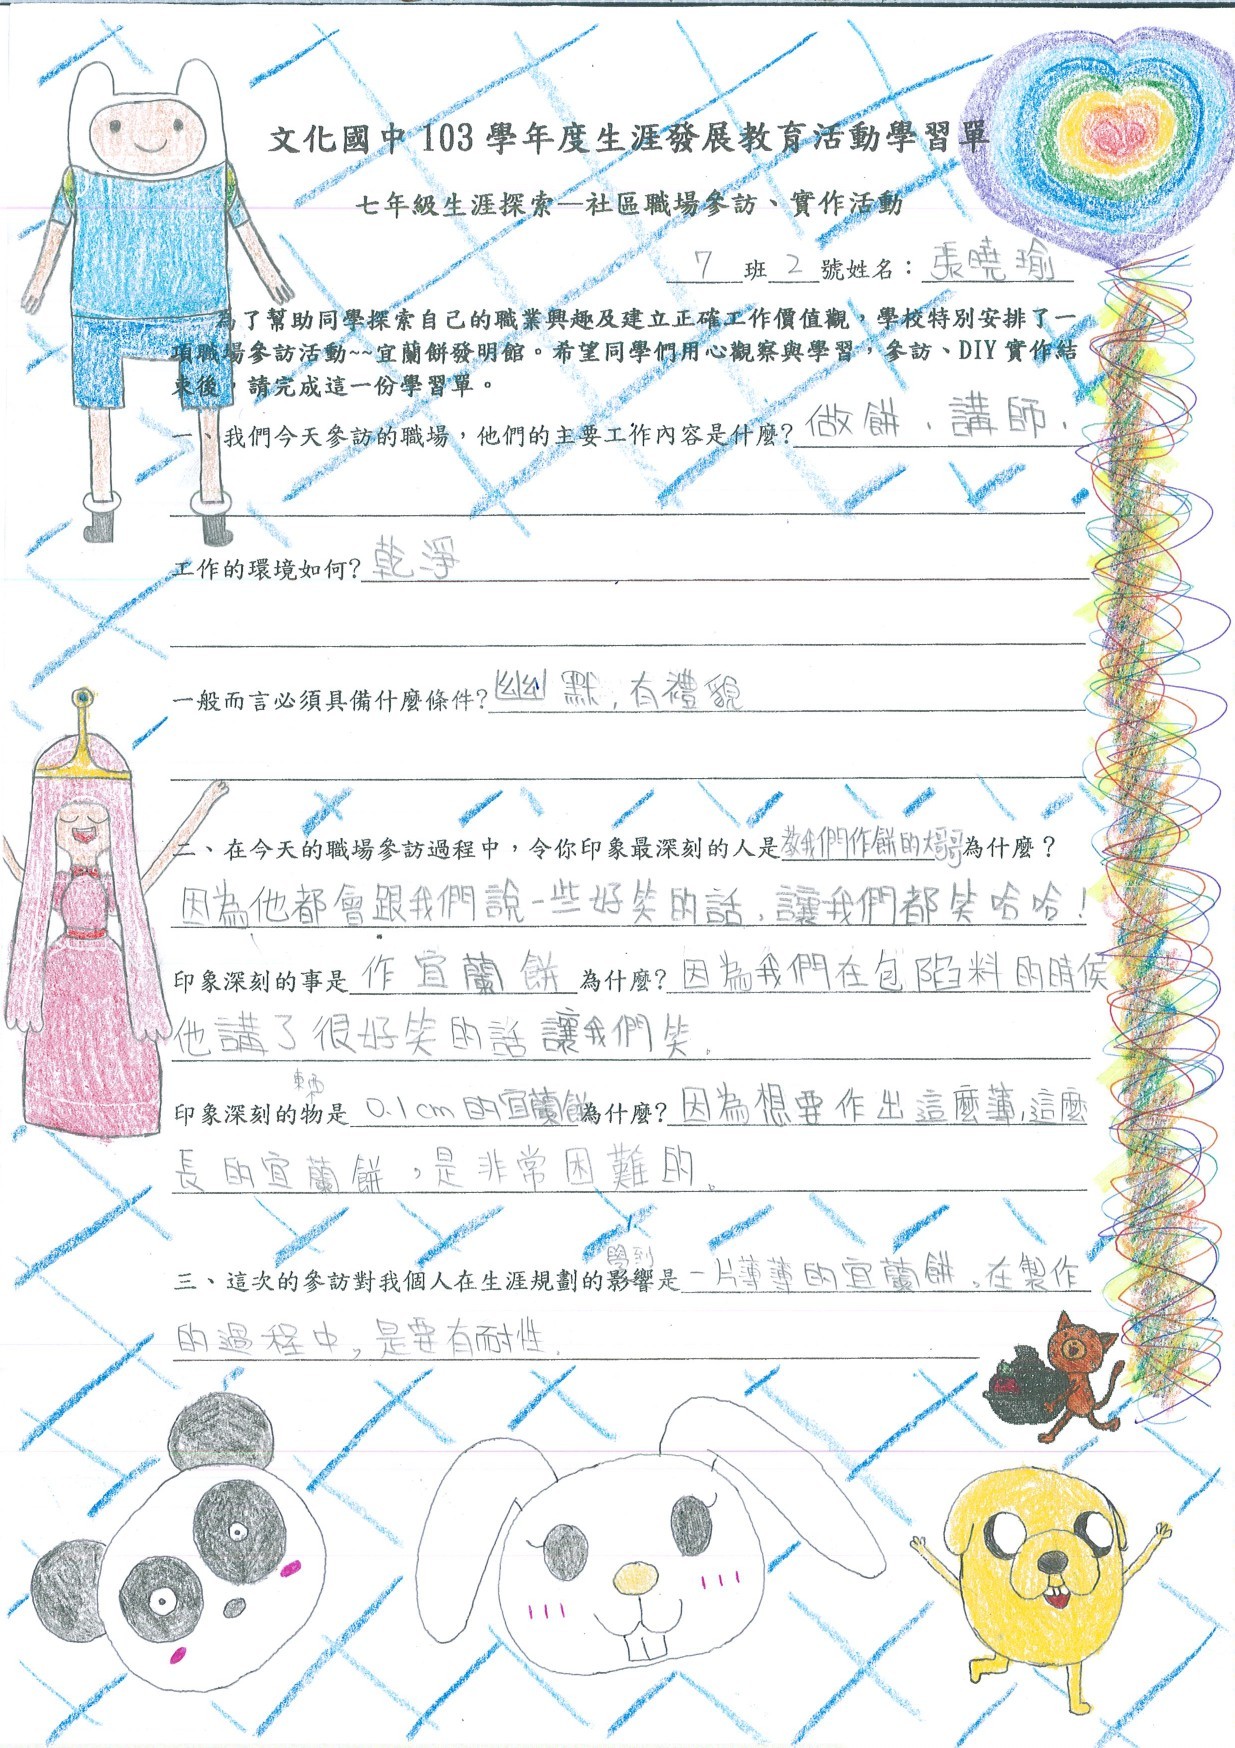 文化國中 103 學年度生涯發展教育活動學習單
七年級生涯探索—社區職場參訪、實作活動
7 班 2 號姓名：張曉瑜
為了幫助同學探索自己的職業興趣及建立正確工作價值觀，學校特別安排了一
項職場參訪活動~~宜蘭餅發明館。希望同學們用心觀察與學習，參訪、DIY 實作結
束後，請完成這一份學習單。
一、我們今天參訪的職場，他們的主要工作內容是什麼?做餅、講師、
工作的環境如何?乾淨
一般而言必須具備什麼條件?幽默，有禮貌
二、在今天的職場參訪過程中，令你印象最深刻的人是教我們作餅的大哥哥為什麼？
因為他都會跟我們說一些好笑的話，讓我們都笑哈哈！
印象深刻的事是作宜蘭餅為什麼?因為我們在包陷料的時候
他講了很好笑的話讓我們笑。
東西
印象深刻的物是0.1cm的宜蘭餅為什麼?因為想要作出這麼薄，這麼
長的宜蘭餅，是非常困難的。
學到
三、這次的參訪對我個人在生涯規劃的影響是一片薄薄的宜蘭餅，在製作
的過程中，是要有耐性。